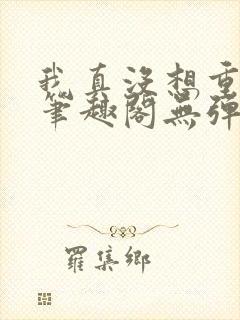 我真没想重
笔趣阁无弹
羅集鄉